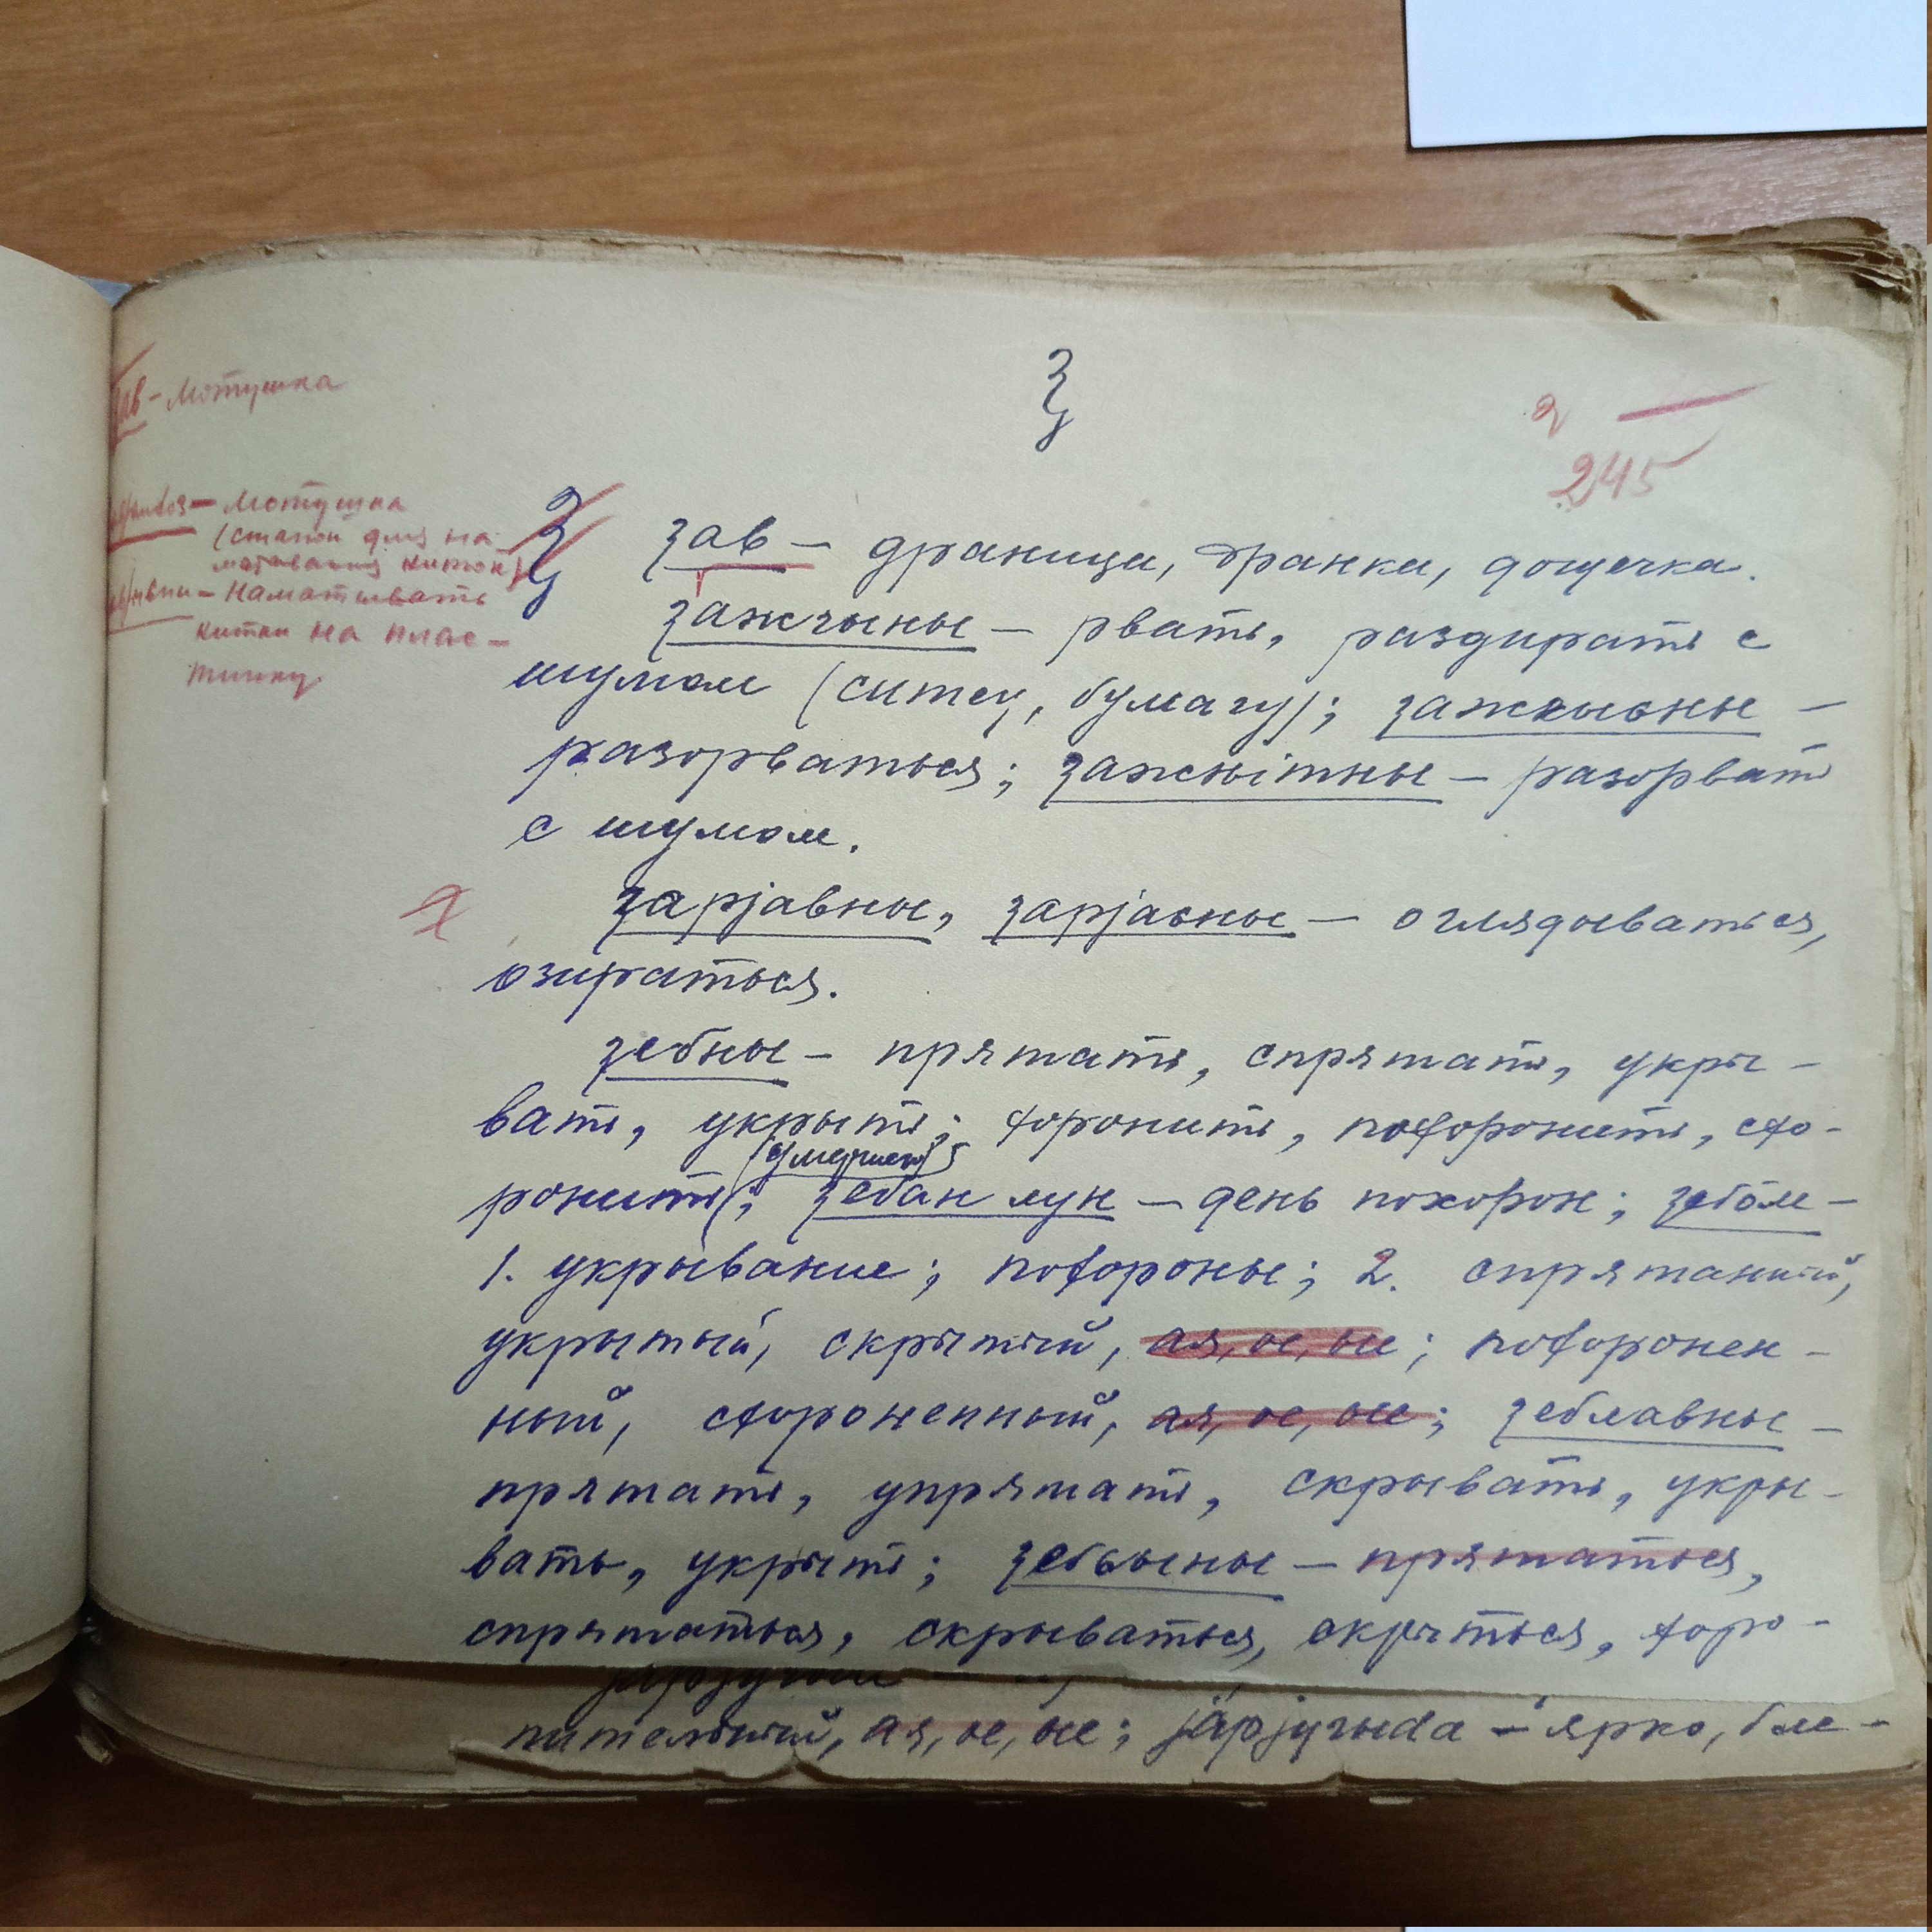 Ԇ
2
245
зав – мотушка
– мотушка
(станок для на-
матывания ниток)
– наматывать
нитки на плас-
тинку
Ԇ
ԇав – драница, дранка, дощечка.
ԇажгыны – рвать, раздирать с
шумом (ситец, бумагу); ԇажмысны –
разорваться; ԇажнітны – разорвать
с шумом.
ԇарјавны, ԇарјасны – оглядываться,
озираться.
ԇебны – прятать, спрятать, укры-
вать, укрыть; хоронить, похоронить, схо-
(умершего)
ронить; ԇебан лун – день похорон; ԇебӧм –
1. укрывание; похороны; 2. спрятанный,
укрытый, скрытый, ая, ое, ые; похоронен-
ный, схороненный, ая, ое, ые; ԇеблавны –
прятать, упрятать, скрывать, укры-
вать, укрыть; ԇебсыны – прятаться,
спрятаться, скрываться, скрыться, хоро-
ая, ое, ые; јарјугыда – ярко, бле-